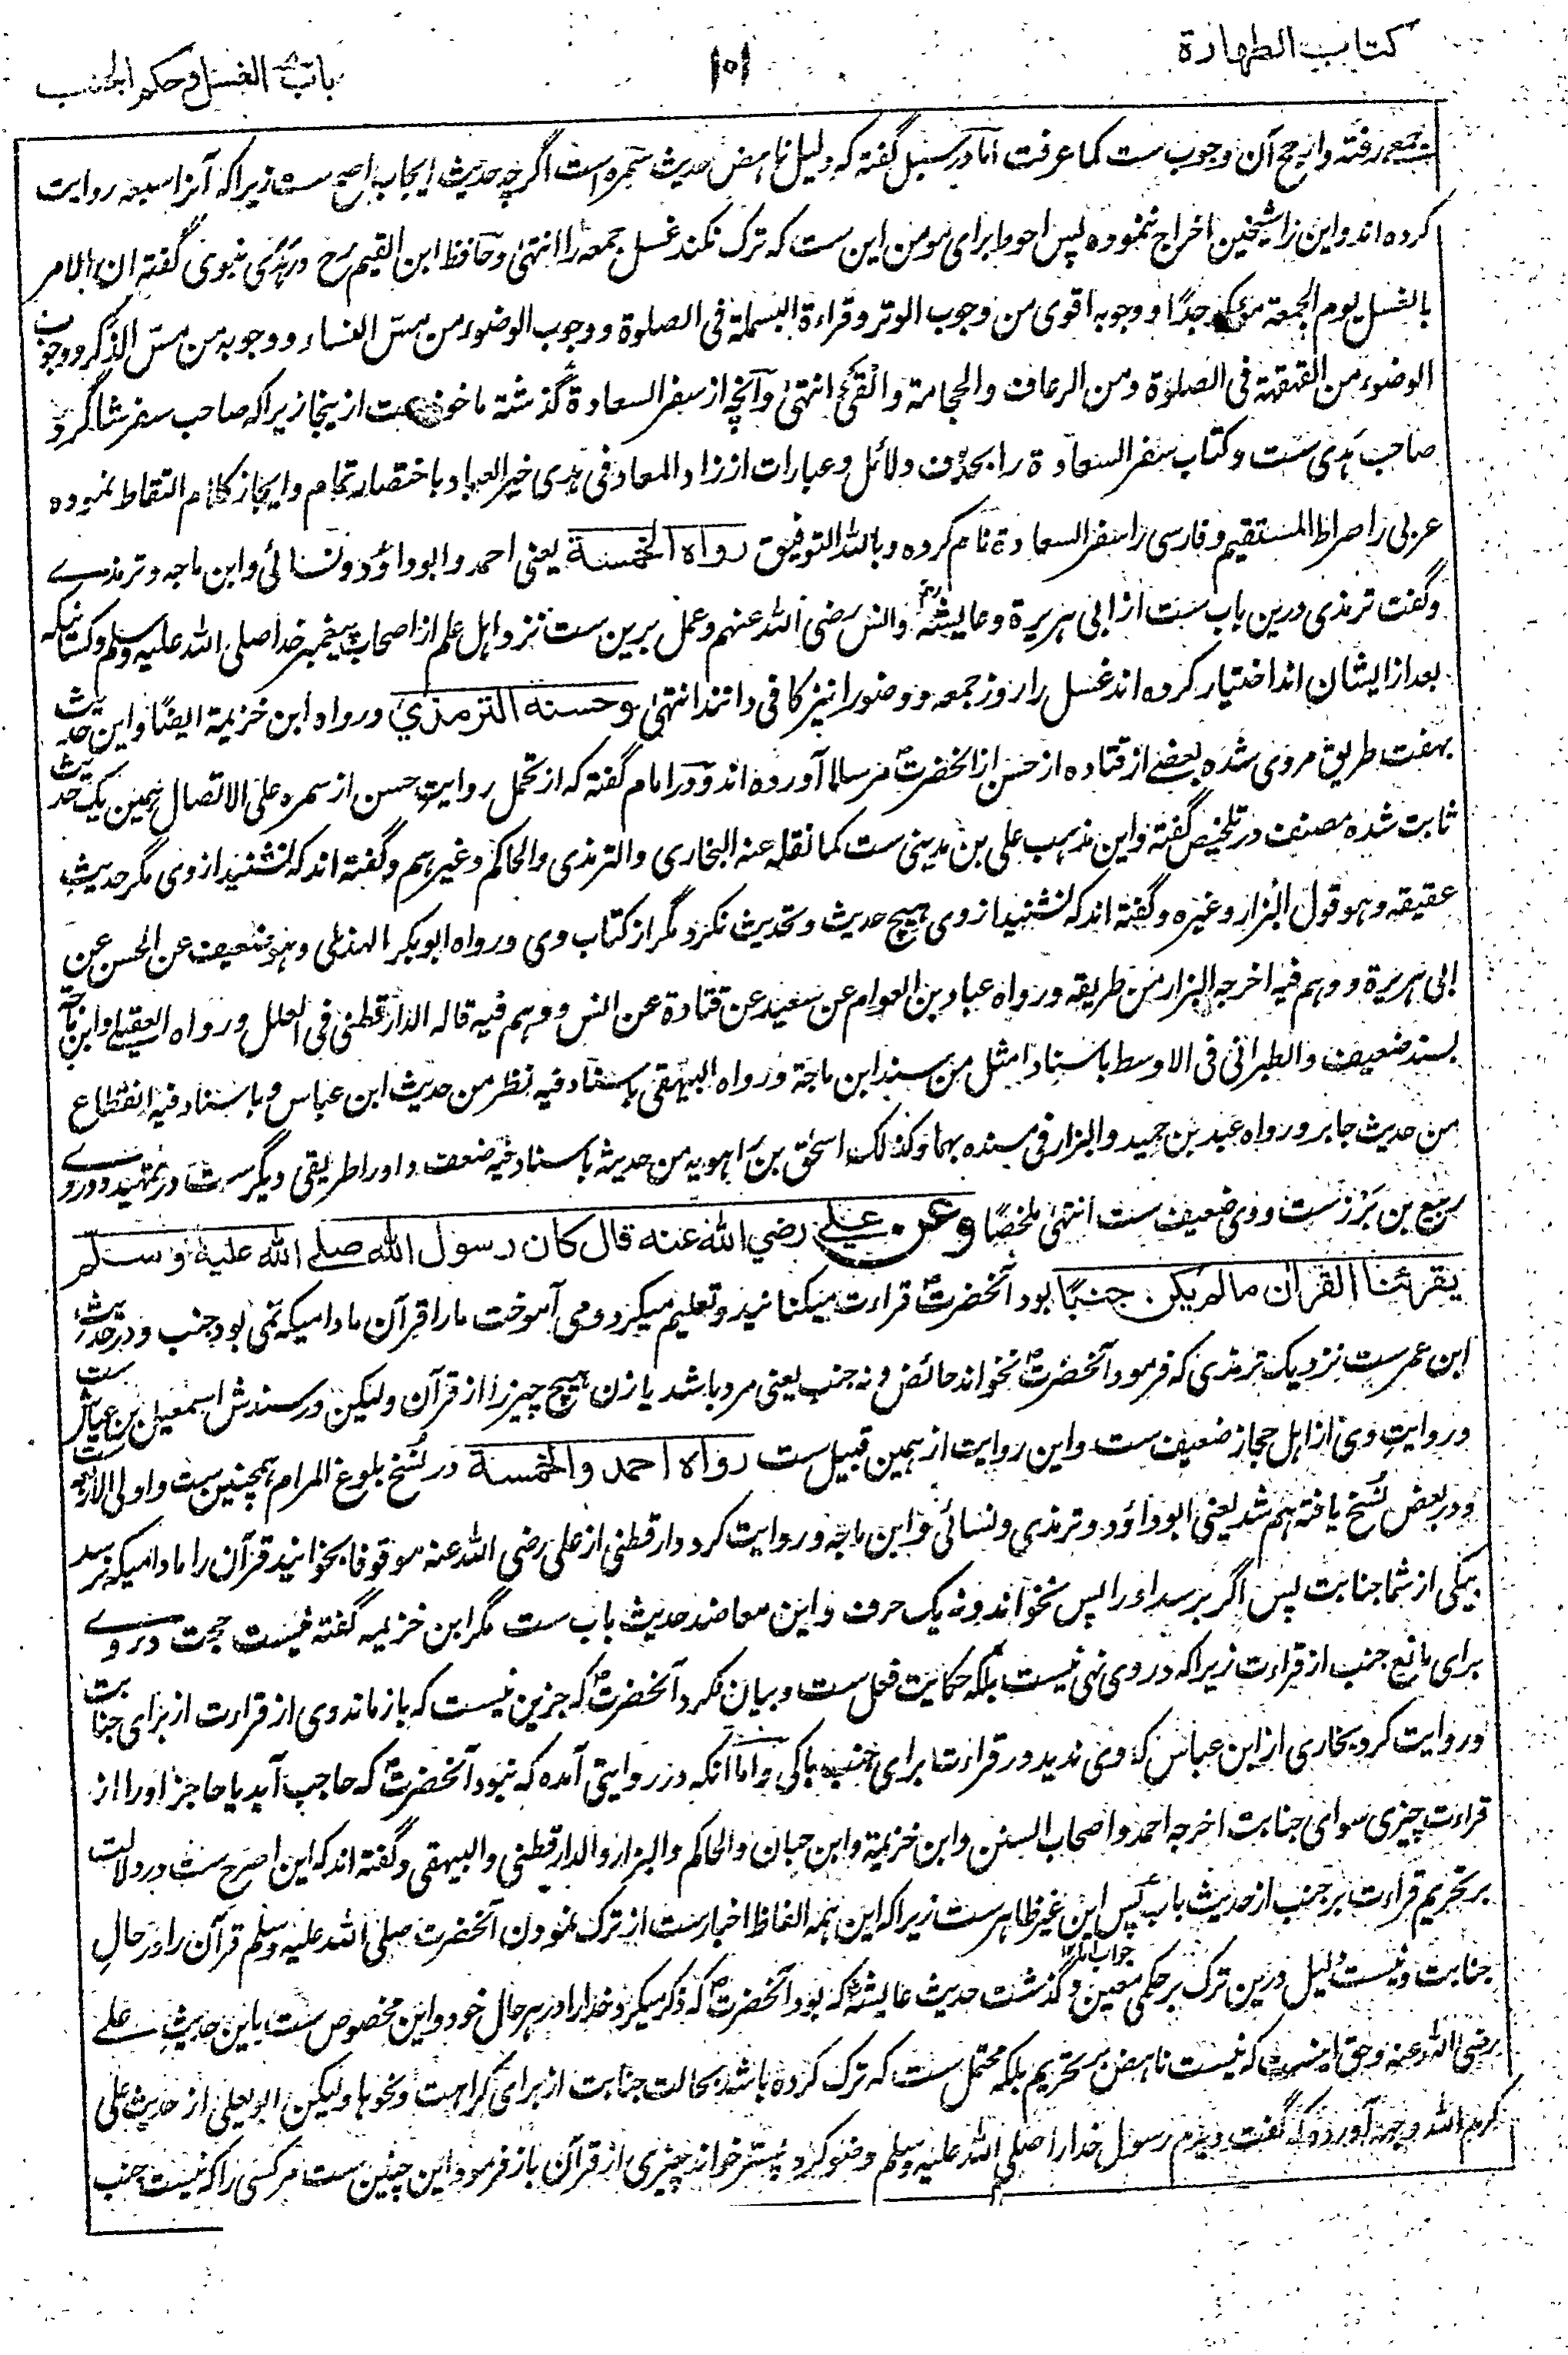 کتاب الطهارة
۱۰۱
باب الغسل وحکم الجنب
جمعه رفته و ارجح آن وجوب ست کما عرفت اما در سبل گفته که دلیل ناهض حدیث سمره است اگرچه حدیث ایجاب اصح ست زیرا که آنرا سبعه روایت
کرده اند و این را شیخین اخراج ننموده پس احوط برای مومن این ست که ترک نکند غسل جمعه را انتهی و حافظ ابن القیم رح در هدی نبوی گفته ان الامر
بالغسل یوم الجمعة موکد جدًا و وجوبه اقوی من وجوب الوتر و قراءة البسملة فی الصلوة و وجوب الوضوء من مس النساء و وجوبه من مس الذکر و وجوب
الوضوء من القهقهة فی الصلوة ومن الرعاف والحجامة والقیء انتهی و آنچه از سفر السعادة گذشته ماخوذ ست ازینجا زیرا که صاحب سفر شاگرد
صاحب هدی ست و کتاب سفر السعادة را بحذف دلائل و عبارات از زاد المعاد فی هدی خیر العباد باختصار تمام و ایجاز کلام التقاط نموده
عربی را صراط المستقیم و فارسی را سفر السعادة نام کرده وبالله التوفیق رواه الخمسة یعنی احمد و ابوداؤد و نسائی و ابن ماجه و ترمذے
و گفت ترمذی درین باب ست از ابی هریرة و عایشه و انس رضی الله عنهم و عمل برین ست نزد اهل علم از اصحاب پیغمبر خدا صلی الله علیه وسلم و کسانیکه
بعد از ایشان اند اختیار کرده اند غسل را روز جمعه و وضو را نیز کافی دانند انتهی وحسنه الترمذي ورواه ابن خزیمة ایضًا و این حدیث
بهفت طریق مروی شده بعضے از قتاده از حسن از آنحضرتؐ مرسلا آورده اند و در امام گفته که از تحمل روایت حسن از سمره علی الاتصال همین یک حدیث
ثابت شده مصنف در تلخیص گفته و این مذهب علی بن مدینی ست کما نقله عنه البخاری والترمذی والحاکم وغیرهم و گفته اند که نشنید از وی مگر حدیث
عقیقه وهو قول البزار وغیره و گفته اند که نشنید از وی هیچ حدیث و تحدیث نکرد مگر از کتاب وی و رواه ابوبکر الهذلی وهو ضعیف عن الحسن عن
ابی هریرة و وهم فیه اخرجه البزار من طریقه و رواه عباد بن العوام عن سعید عن قتادة عن انس و وهم فیه قاله الدارقطنی فی العلل و رواه العقیلے و ابن ماجة
بسند ضعیف والطبرانی فی الاوسط باسناد امثل من سند ابن ماجة و رواه البیهقی باسناد فیه نظر من حدیث ابن عباس و باسناد فیه انقطاع
من حدیث جابر و رواه عبد بن حمید والبزار فی مسنده بهما وکذلک اسحٰق بن راهویه من حدیثه باسناد فیه ضعف و او را طریقی دیگر ست در تمهید و درو
ربیع بن بدر ست و وی ضعیف ست انتهی ملخصًا وعن علے رضي الله عنه قال کان رسول الله صلے الله علیه وسلم
یقرئنا القران مالم یکن جنبًا بود آنحضرتؐ قراءت میکنانید و تعلیم میکرد و می آموخت ما را قرآن مادامیکه نمی بود جنب و در حدیث
ابن عمر ست نزدیک ترمذی که فرمود آنحضرتؐ نخواند حائض و نه جنب یعنی مرد باشد یا زن هیچ چیز را از قرآن ولیکن در سندش اسمعیل بن عیاش ست
و روایت وی از اهل حجاز ضعیف ست و این روایت از همین قبیل ست رواه احمد والخمسة در نسخ بلوغ المرام همچنین ست و اولی الاربعة ست
و در بعض نسخ یافته هم شد یعنی ابوداؤد و ترمذی و نسائی و ابن ماجه و روایت کرد دارقطنی از علی رضی الله عنه موقوفا بخوانید قرآن را مادامیکه نرسد
بیکی از شما جنابت پس اگر برسد او را پس نخواند و نه یک حرف و این معاضد حدیث باب ست مگر ابن خزیمه گفته نیست حجت در وے
برای مانع جنب از قراءت زیرا که در وی نهی نیست بلکه حکایت فعل ست و بیان نکرد آنحضرتؐ که جزین نیست که باز ماند وی از قراءت از برای جنابت
و روایت کرد بخاری از ابن عباس که وی ندید در قراءت برای جنب باکی و اما آنکه در روایتی آمده که نبود آنحضرتؐ که حاجب آید یا حاجز او را از
قراءت چیزی سوای جنابت اخرجه احمد واصحاب السنن وابن خزیمة وابن حبان والحاکم والبزار والدارقطنی والبیهقی و گفته اند که این اصرح ست در دلالت
بر تحریم قراءت بر جنب از حدیث باب پس این غیر ظاهر ست زیرا که این همه الفاظ اخبار ست از ترک نمودن آنحضرت صلی الله علیه وسلم قرآن را در حال
جواب اما ۱۲
جنابت و نیست دلیل درین ترک بر حکمی معین و گذشت حدیث عایشه که بود آنحضرتؐ که ذکر میکرد خدا را در هر حال خود و این مخصوص ست باین حدیث علے
رضی الله عنه و حق اینست که نیست ناهض بر تحریم بلکه محتمل ست که ترک کرده باشد بحالت جنابت از برای کراهت و نحوها ولیکن ابویعلی از حدیث علی
کرم الله وجهه آورده که گفت دیدم رسول خدا را صلی الله علیه وسلم وضو کرد پستر خواند چیزی از قرآن باز فرمود این چنین ست مر کسی را که نیست جنب